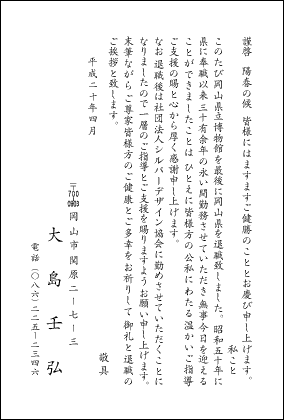 謹啓　陽春の候　皆様にはますますご健勝のこととお慶び申し上げます。
私こと
このたび岡山県立博物館を最後に岡山県を退職致しました。昭和五十年に
県に奉職以来三十有余年の永い間勤務させていただき無事今日を迎える
ことができましたことは　ひとえに皆様方の公私にわたる温かいご指導
ご支援の賜と心から厚く感謝申し上げます。
なお退職後は社団法人シルバーデザイン協会に勤めさせていただくことに
なりましたので一層のご指導とご支援を賜りますようお願い申し上げます。
末筆ながらご尊家皆様方のご健康とご多幸をお祈りして御礼と退職の
ご挨拶と致します。
敬具
平成二十年四月
〒700-0803
岡山市関原二－七－三
大島壬弘
電話（〇八六）二二五－二三四六